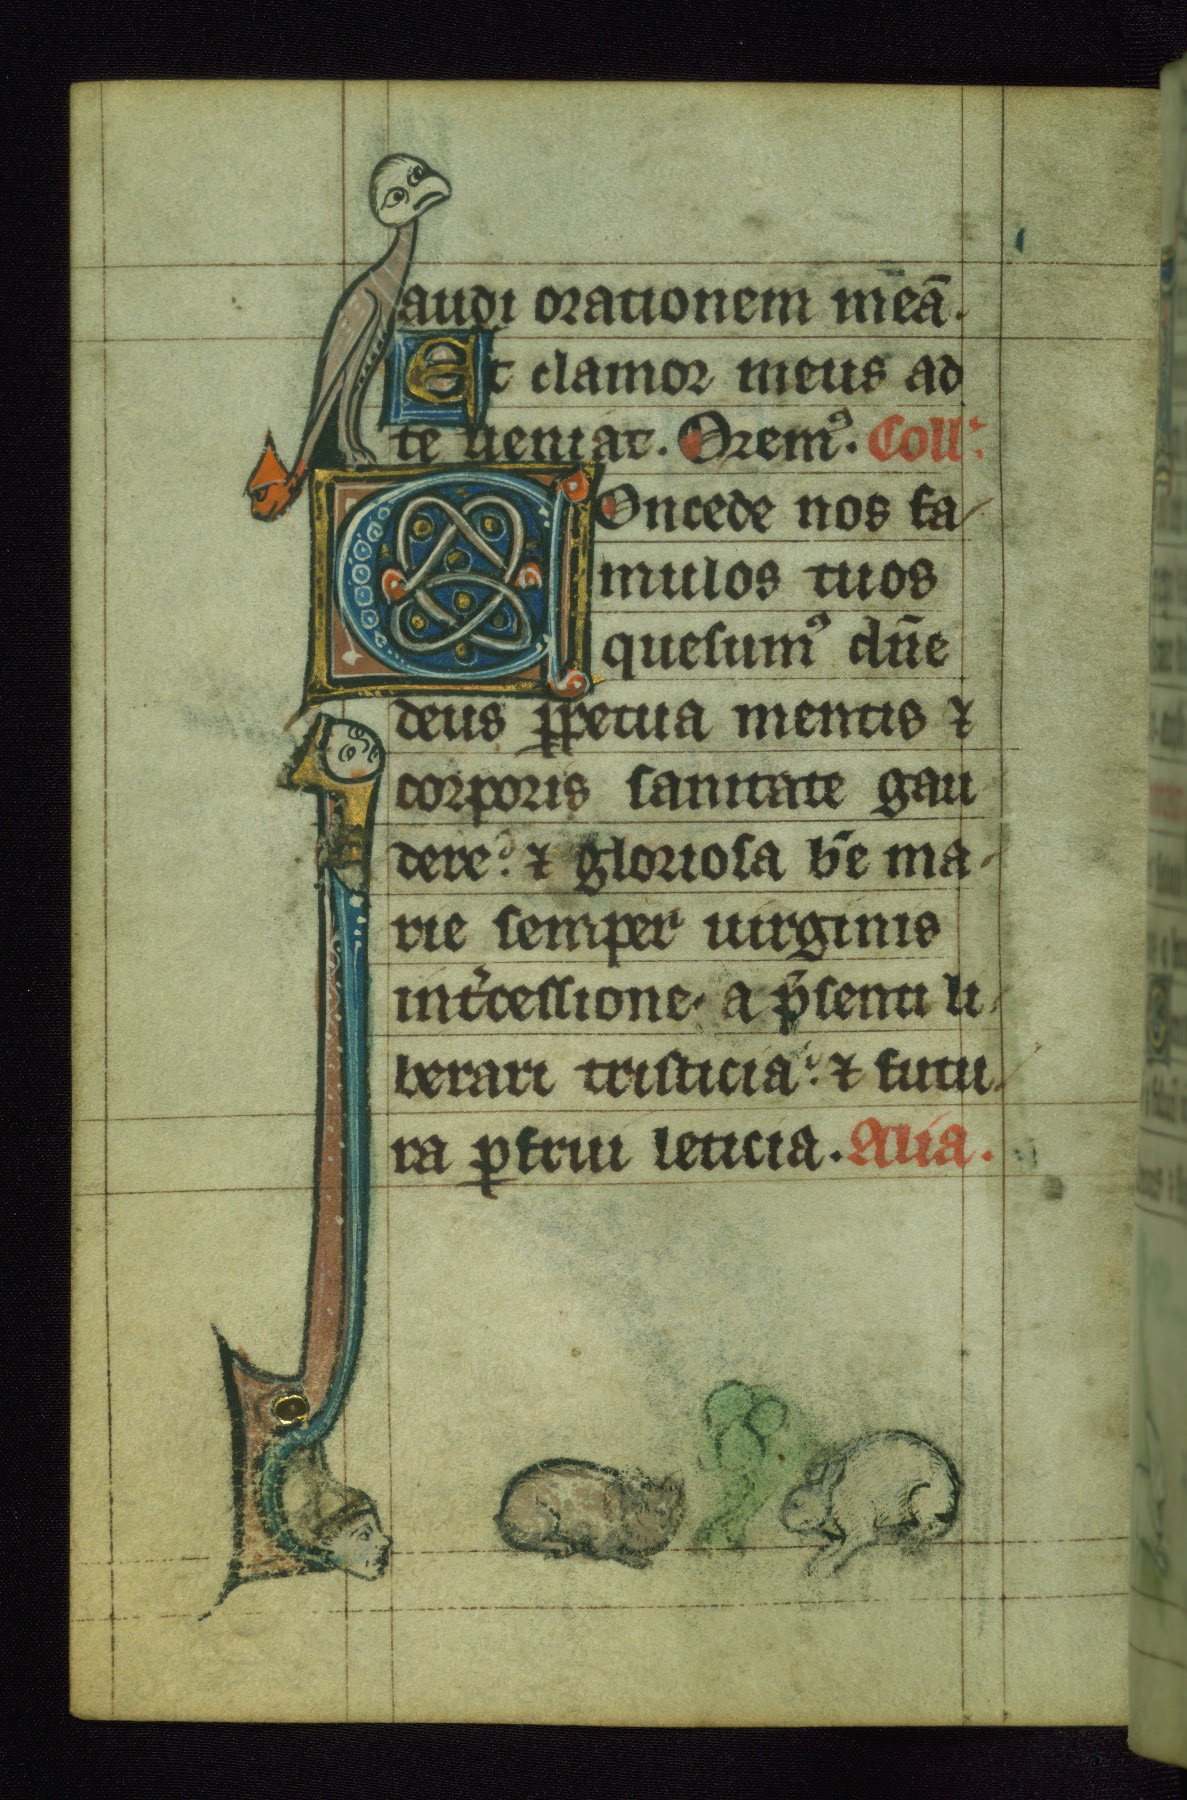 audi orationem meā.
Et clamor meus ad
te ueniat. Oremꝰ. Coll'.
Concede nos fa
mulos tuos
quesumꝰ dn̄e
deus ꝑpetua mentis ⁊
corporis sanitate gau
dere. ⁊ gloriosa bē ma
rie semper uirginis
int̾cessione. a p̄senti li
berari tristicia. ⁊ futu
ra ꝑfrui leticia. Alia.